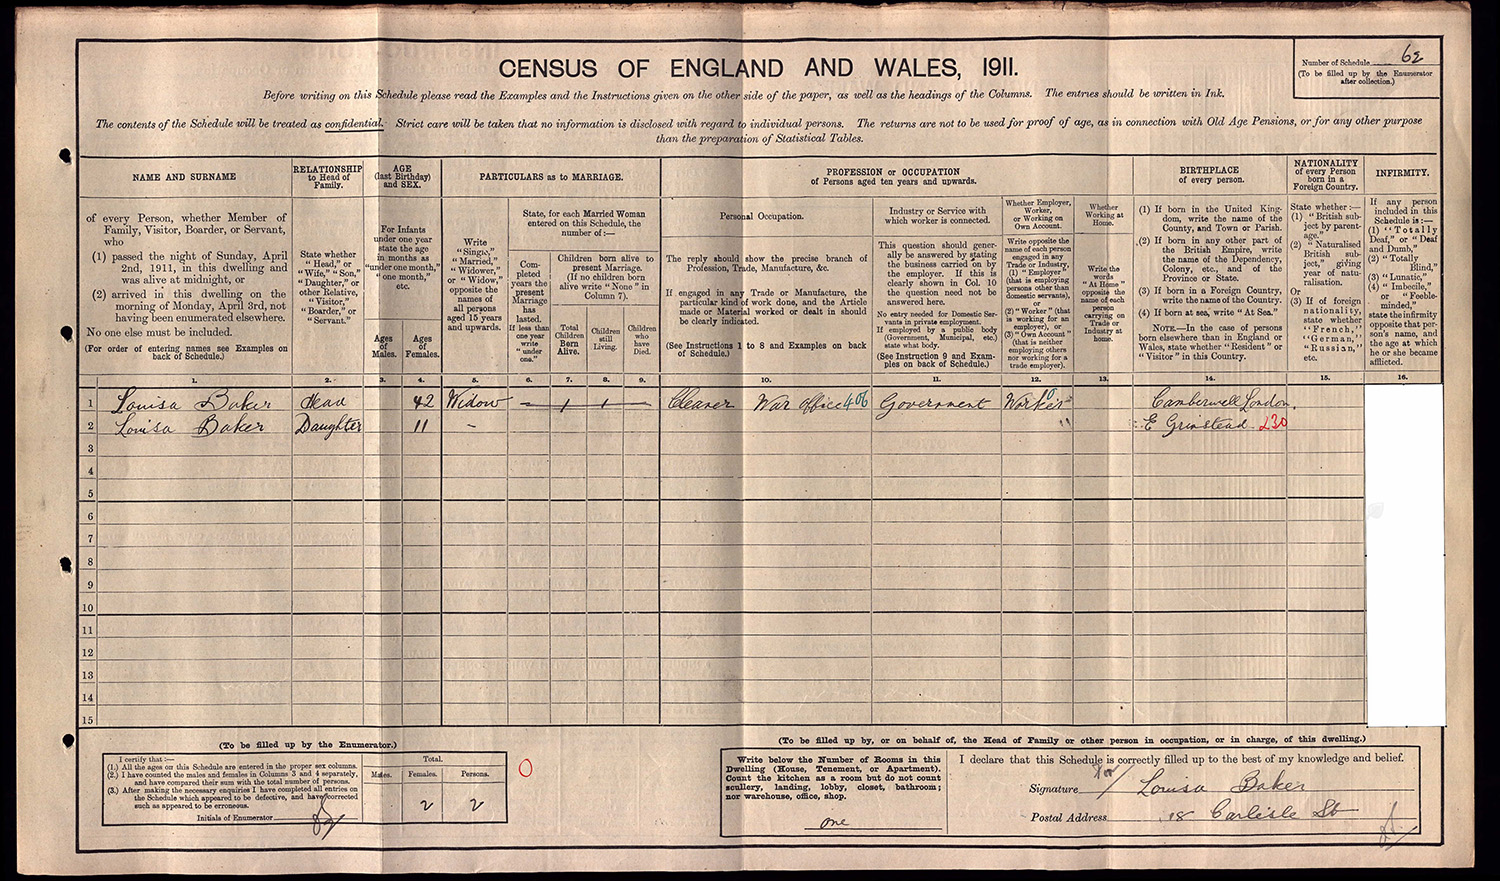 CENSUS OF ENGLAND AND WALES, 1911.
Number of Schedule 62
(To be filled up by the Enumerator
after collection.)
Before writing on this Schedule please read the Examples and the Instructions given on the other side of the paper, as well as the headings of the Columns. The entries should be written in Ink.
The contents of the Schedule will be treated as confidential. Strict care will be taken that no information is disclosed with regard to individual persons. The returns are not to be used for proof of age, as in connection with Old Age Pensions, or for any other purpose
than the preparation of Statistical Tables.
NAME AND SURNAME
of every Person, whether Member of
Family, Visitor, Boarder, or Servant,
who
(1) passed the night of Sunday, April
2nd, 1911, in this dwelling and
was alive at midnight, or
(2) arrived in this dwelling on the
morning of Monday, April 3rd, not
having been enumerated elsewhere.
No one else must be included.
(For order of entering names see Examples on
back of Schedule.)
RELATIONSHIP
to Head of
Family.
State whether
"Head," or
"Wife," "Son,"
"Daughter," or
other Relative,
"Visitor,"
"Boarder," or
"Servant."
AGE
(last Birthday)
and SEX.
For Infants
under one year
state the age
in months as
"under one month,"
"one month,"
etc.
Ages
of
Males.
Ages
of
Females.
PARTICULARS as to MARRIAGE.
Write
"Single,"
"Married,"
"Widower,"
or "Widow,"
opposite the
names of
all persons
aged 15 years
and upwards.
State, for each Married Woman
entered on this Schedule, the
number of:—
Com-
pleted
years the
present
Marriage
has
lasted.
If less than
one year
write
"under
one."
Children born alive to
present Marriage.
(If no children born
alive write "None" in
Column 7).
Total
Children
Born
Alive.
Children
still
Living.
Children
who
have
Died.
PROFESSION or OCCUPATION
of Persons aged ten years and upwards.
Personal Occupation.
The reply should show the precise branch of
Profession, Trade, Manufacture, &c.
If engaged in any Trade or Manufacture, the
particular kind of work done, and the Article
made or Material worked or dealt in should
be clearly indicated.
(See Instructions 1 to 8 and Examples on back
of Schedule.)
Industry or Service with
which worker is connected.
This question should gener-
ally be answered by stating
the business carried on by
the employer. If this is
clearly shown in Col. 10
the question need not be
answered here.
No entry needed for Domestic Ser-
vants in private employment.
If employed by a public body
(Government, Municipal, etc.)
state what body.
(See Instruction 9 and Exam-
ples on back of Schedule.)
Whether Employer,
Worker,
or Working on
Own Account.
Write opposite the
name of each person
engaged in any
Trade or Industry,
(1) "Employer"
(that is employing
persons other than
domestic servants),
or
(2) "Worker" (that
is working for an
employer), or
(3) "Own Account"
(that is neither
employing others
nor working for a
trade employer).
Whether
Working at
Home.
Write the
words
"At Home"
opposite the
name of each
person
carrying on
Trade or
Industry at
home.
BIRTHPLACE
of every person.
(1) If born in the United King-
dom, write the name of the
County, and Town or Parish.
(2) If born in any other part of
the British Empire, write
the name of the Dependency,
Colony, etc., and of the
Province or State.
(3) If born in a Foreign Country,
write the name of the Country.
(4) If born at sea, write "At Sea."
NOTE.—In the case of persons
born elsewhere than in England or
Wales, state whether "Resident" or
"Visitor" in this Country.
NATIONALITY
of every Person
born in a
Foreign Country.
State whether:—
(1) "British sub-
ject by parent-
age."
(2) "Naturalised
British sub-
ject," giving
year of natu-
ralisation.
Or
(3) If of foreign
nationality,
state whether
"French,"
"German,"
"Russian,"
etc.
INFIRMITY.
If any person
included in this
Schedule is:—
(1) "Totally
Deaf," or "Deaf
and Dumb,"
(2) "Totally
Blind,"
(3) "Lunatic,"
(4) "Imbecile,"
or "Feeble-
minded,"
state the infirmity
opposite that per-
son's name, and
the age at which
he or she became
afflicted.
1. 2. 3. 4. 5. 6. 7. 8. 9. 10. 11. 12. 13. 14. 15. 16.
1 Louisa Baker Head 42 Widow – 1 1 – Cleaner War Office 406 Government Worker Camberwell London.
2 Louisa Baker Daughter 11 – " E Grinstead 230
3
4
5
6
7
8
9
10
11
12
13
14
15
(To be filled up by the Enumerator.)
I certify that:—
(1.) All the ages on this Schedule are entered in the proper sex columns.
(2.) I have counted the males and females in Columns 3 and 4 separately,
and have compared their sum with the total number of persons.
(3.) After making the necessary enquiries I have completed all entries on
the Schedule which appeared to be defective, and have corrected
such as appeared to be erroneous.
Initials of Enumerator
Total.
Males. Females. Persons.
2 2
0
(To be filled up by, or on behalf of, the Head of Family or other person in occupation, or in charge, of this dwelling.)
Write below the Number of Rooms in this
Dwelling (House, Tenement, or Apartment).
Count the kitchen as a room but do not count
scullery, landing, lobby, closet, bathroom;
nor warehouse, office, shop.
one
I declare that this Schedule is correctly filled up to the best of my knowledge and belief.
Signature Louisa Baker
Postal Address 18 Carlisle St